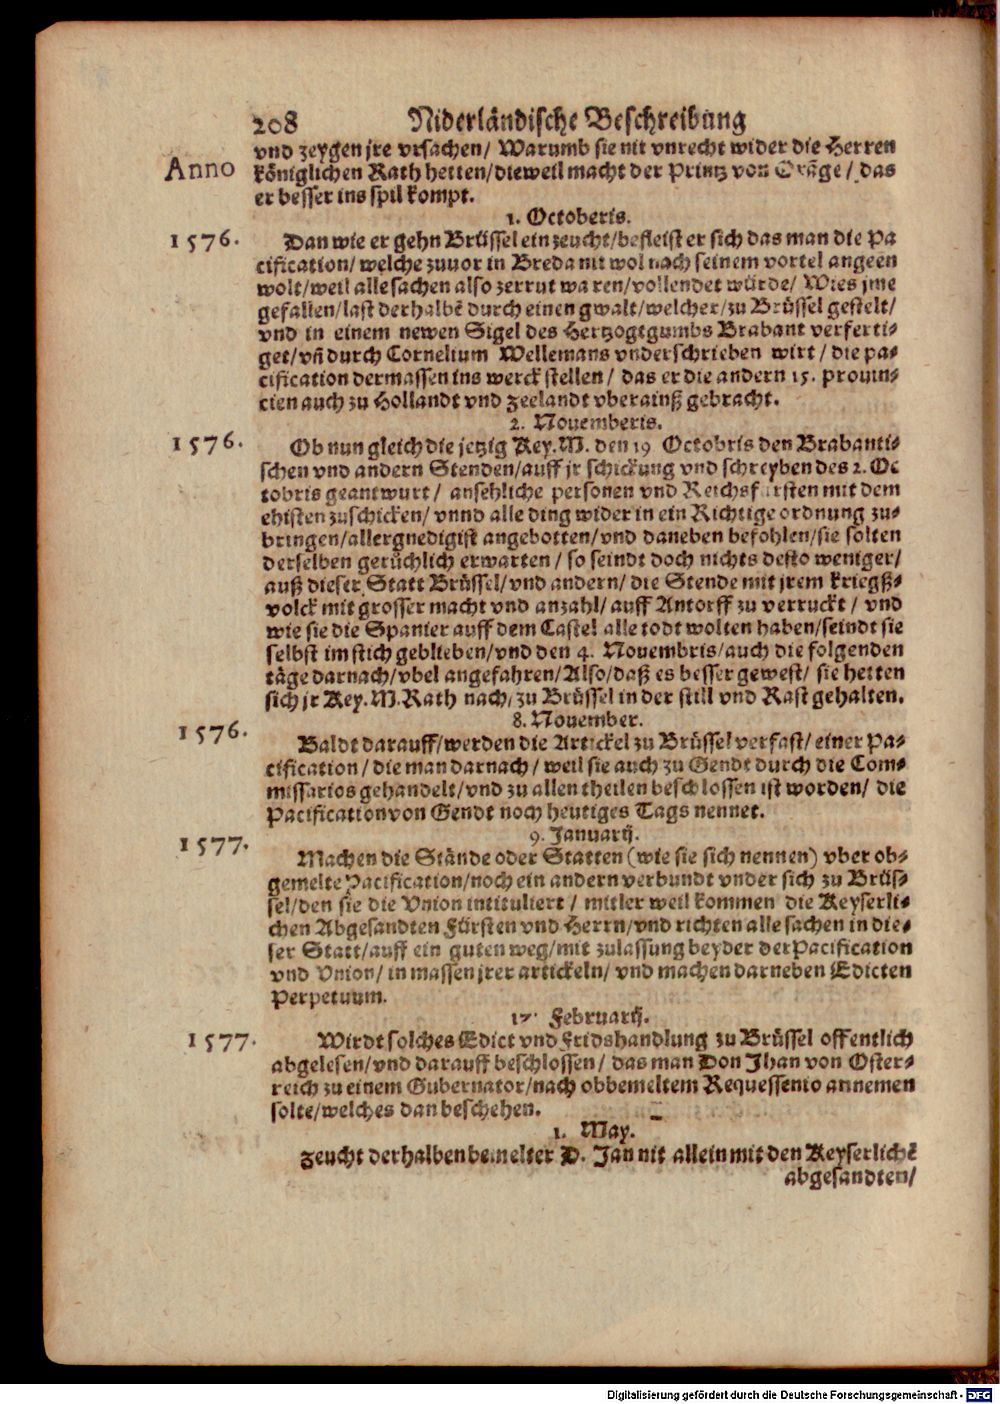 208 Niderländische Beschreibung
vnd zeygen jre vrsachen/ Warumb sie nit vnrecht wider die Herren
Anno königlichen Rath hetten/dieweil macht der Printz von Orãge/ das
er besser ins spil kompt.
1. Octoberis.
1576. Dan wie er gehn Brüssel ein zeucht/befleist er sich das man die Pa
cification/ welche zuuor in Breda nit wol nach seinem vortel angeen
wolt/weil alle sachen also zerrut waren/vollendet würde/ Wies jme
gefallen/last derhalbẽ durch einen gwalt/welcher/zu Brüssel gestelt/
vnd in einem newen Sigel des Hertzogtgumbs Brabant verferti-
get/vñ durch Cornelium Wellemans vnderschrieben wirt/ die pa-
cification dermassen ins werck stellen/ das er die andern 15. prouin-
cien auch zu Hollandt vnd Zeelandt vberainß gebracht.
2. Nouemberis.
1576. Ob nun gleich die jetzig Key.M. den 19 Octobris den Brabanti-
schen vnd andern Stenden/auff jr schickung vnd schreyben des 2. Oc
tobris geantwurt/ ansehliche personen vnd Reichsfürsten mit dem
ehisten zuschicken/ vnnd alle ding wider in ein Richtige ordnung zu-
bringen/allergnedigist angebotten/vnd daneben befohlen/sie solten
derselben gerüchlich erwarten/ so seindt doch nichts desto weniger/
auß dieser Statt Brüssel/vnd andern/ die Stende mit jrem kriegß-
volck mit grosser macht vnd anzahl/ auff Antorff zu verruckt/ vnd
wie sie die Spanier auff dem Castel alle todt wolten haben/seindt sie
selbst im stich geblieben/vnd den 4. Nouembris/auch die folgenden
täge darnach/vbel angefahren/Also/daß es besser gewest/ sie hetten
sich jr Key. M. Rath nach/zu Brüssel in der still vnd Rast gehalten.
8. Nouember.
1576. Baldt darauff/werden die Artickel zu Brüssel verfast/einer Pa-
cification/ die man darnach/ weil sie auch zu Gendt durch die Com-
missarios gehandelt/vnd zu allen theilen beschlossen ist worden/ die
Pacification von Gendt noch heutiges Tags nennet.
9. Januarij.
1577. Machen die Stände oder Statten (wie sie sich nennen) vber ob-
gemelte Pacification/noch ein andern verbundt vnder sich zu Brüs-
sel/den sie die Vnion intituliert/ mitler weil kommen die Keyserli-
chen Abgesandten Fürsten vnd Herrn/vnd richten alle sachen in die-
ser Statt/auff ein guten weg/mit zulassung beyder der Pacification
vnd Vnion/ in massen jrer artickeln/ vnd machen darneben Edicten
Perpetuum.
17. Februarij.
1577. Wirdt solches Edict vnd Fridshandlung zu Brüssel offentlich
abgelesen/vnd darauff beschlossen/ das man Don Jhan von Oster-
reich zu einem Gubernator/nach obbemeltem Requessenio annemen
solte/welches dan beschehen.
1. May.
Zeucht derhalben bemelter D. Jan nit allein mit den Keyserlichẽ
abgesandten/
Digitalisierung gefördert durch die Deutsche Forschungsgemeinschaft - DFG